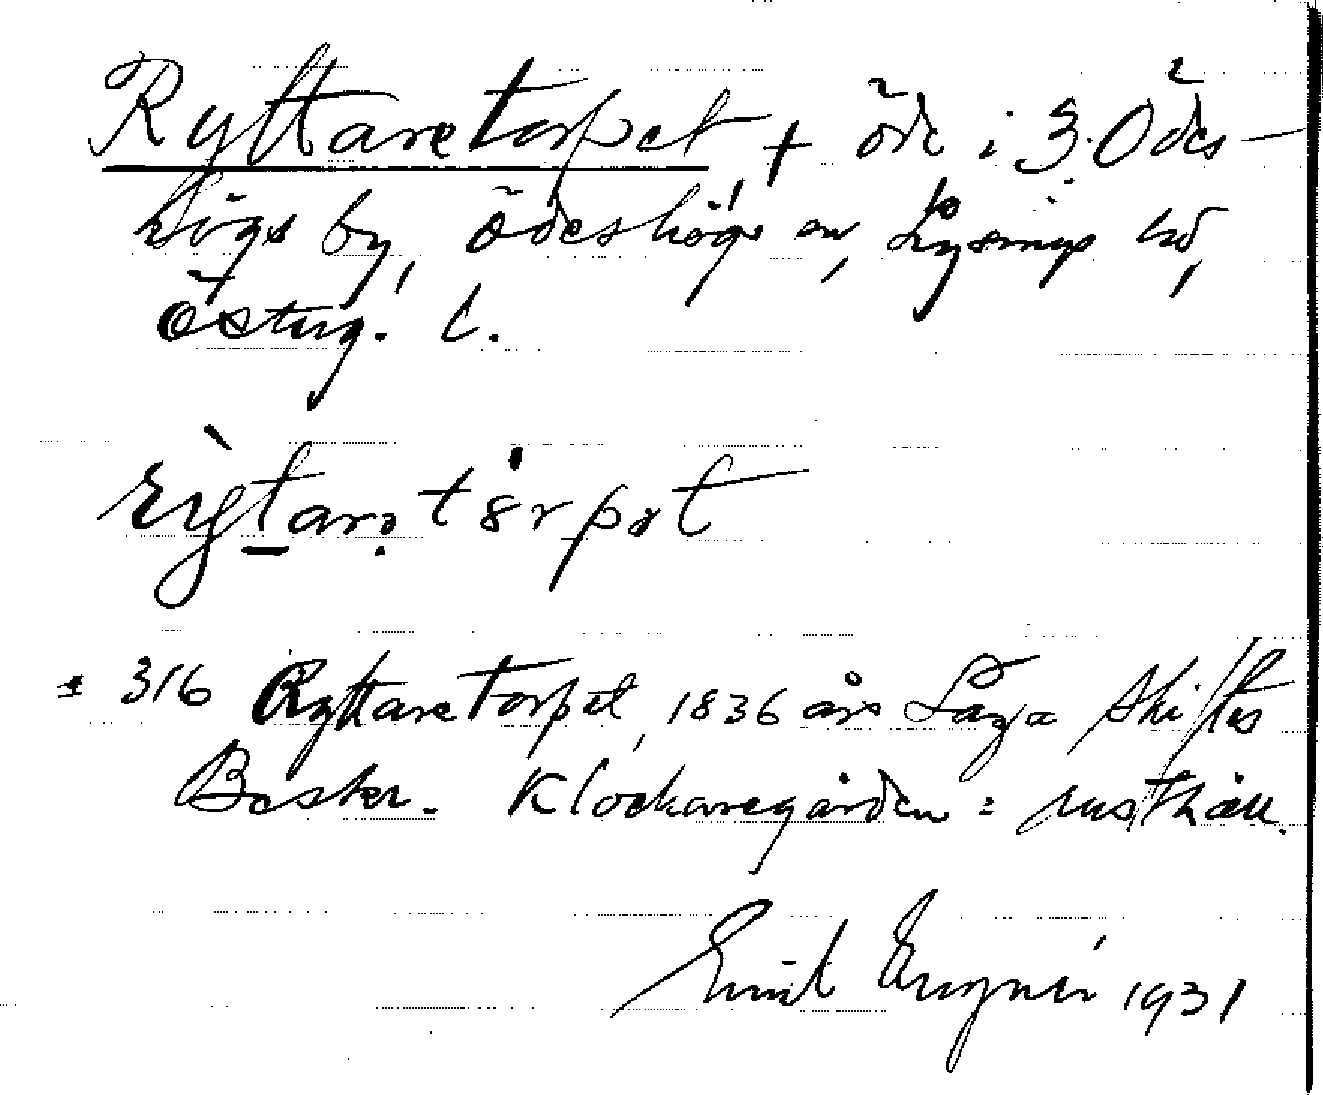 Ryttaretorpet + öde i 3. Ödes-
högs by, Ödeshögs sn, Lysings hd,
Österg. l.
316 Ryttaretorpet, 1836 års Laga Skiftes
Beskr. Klockaregården = rusthåll.
Emil 1931